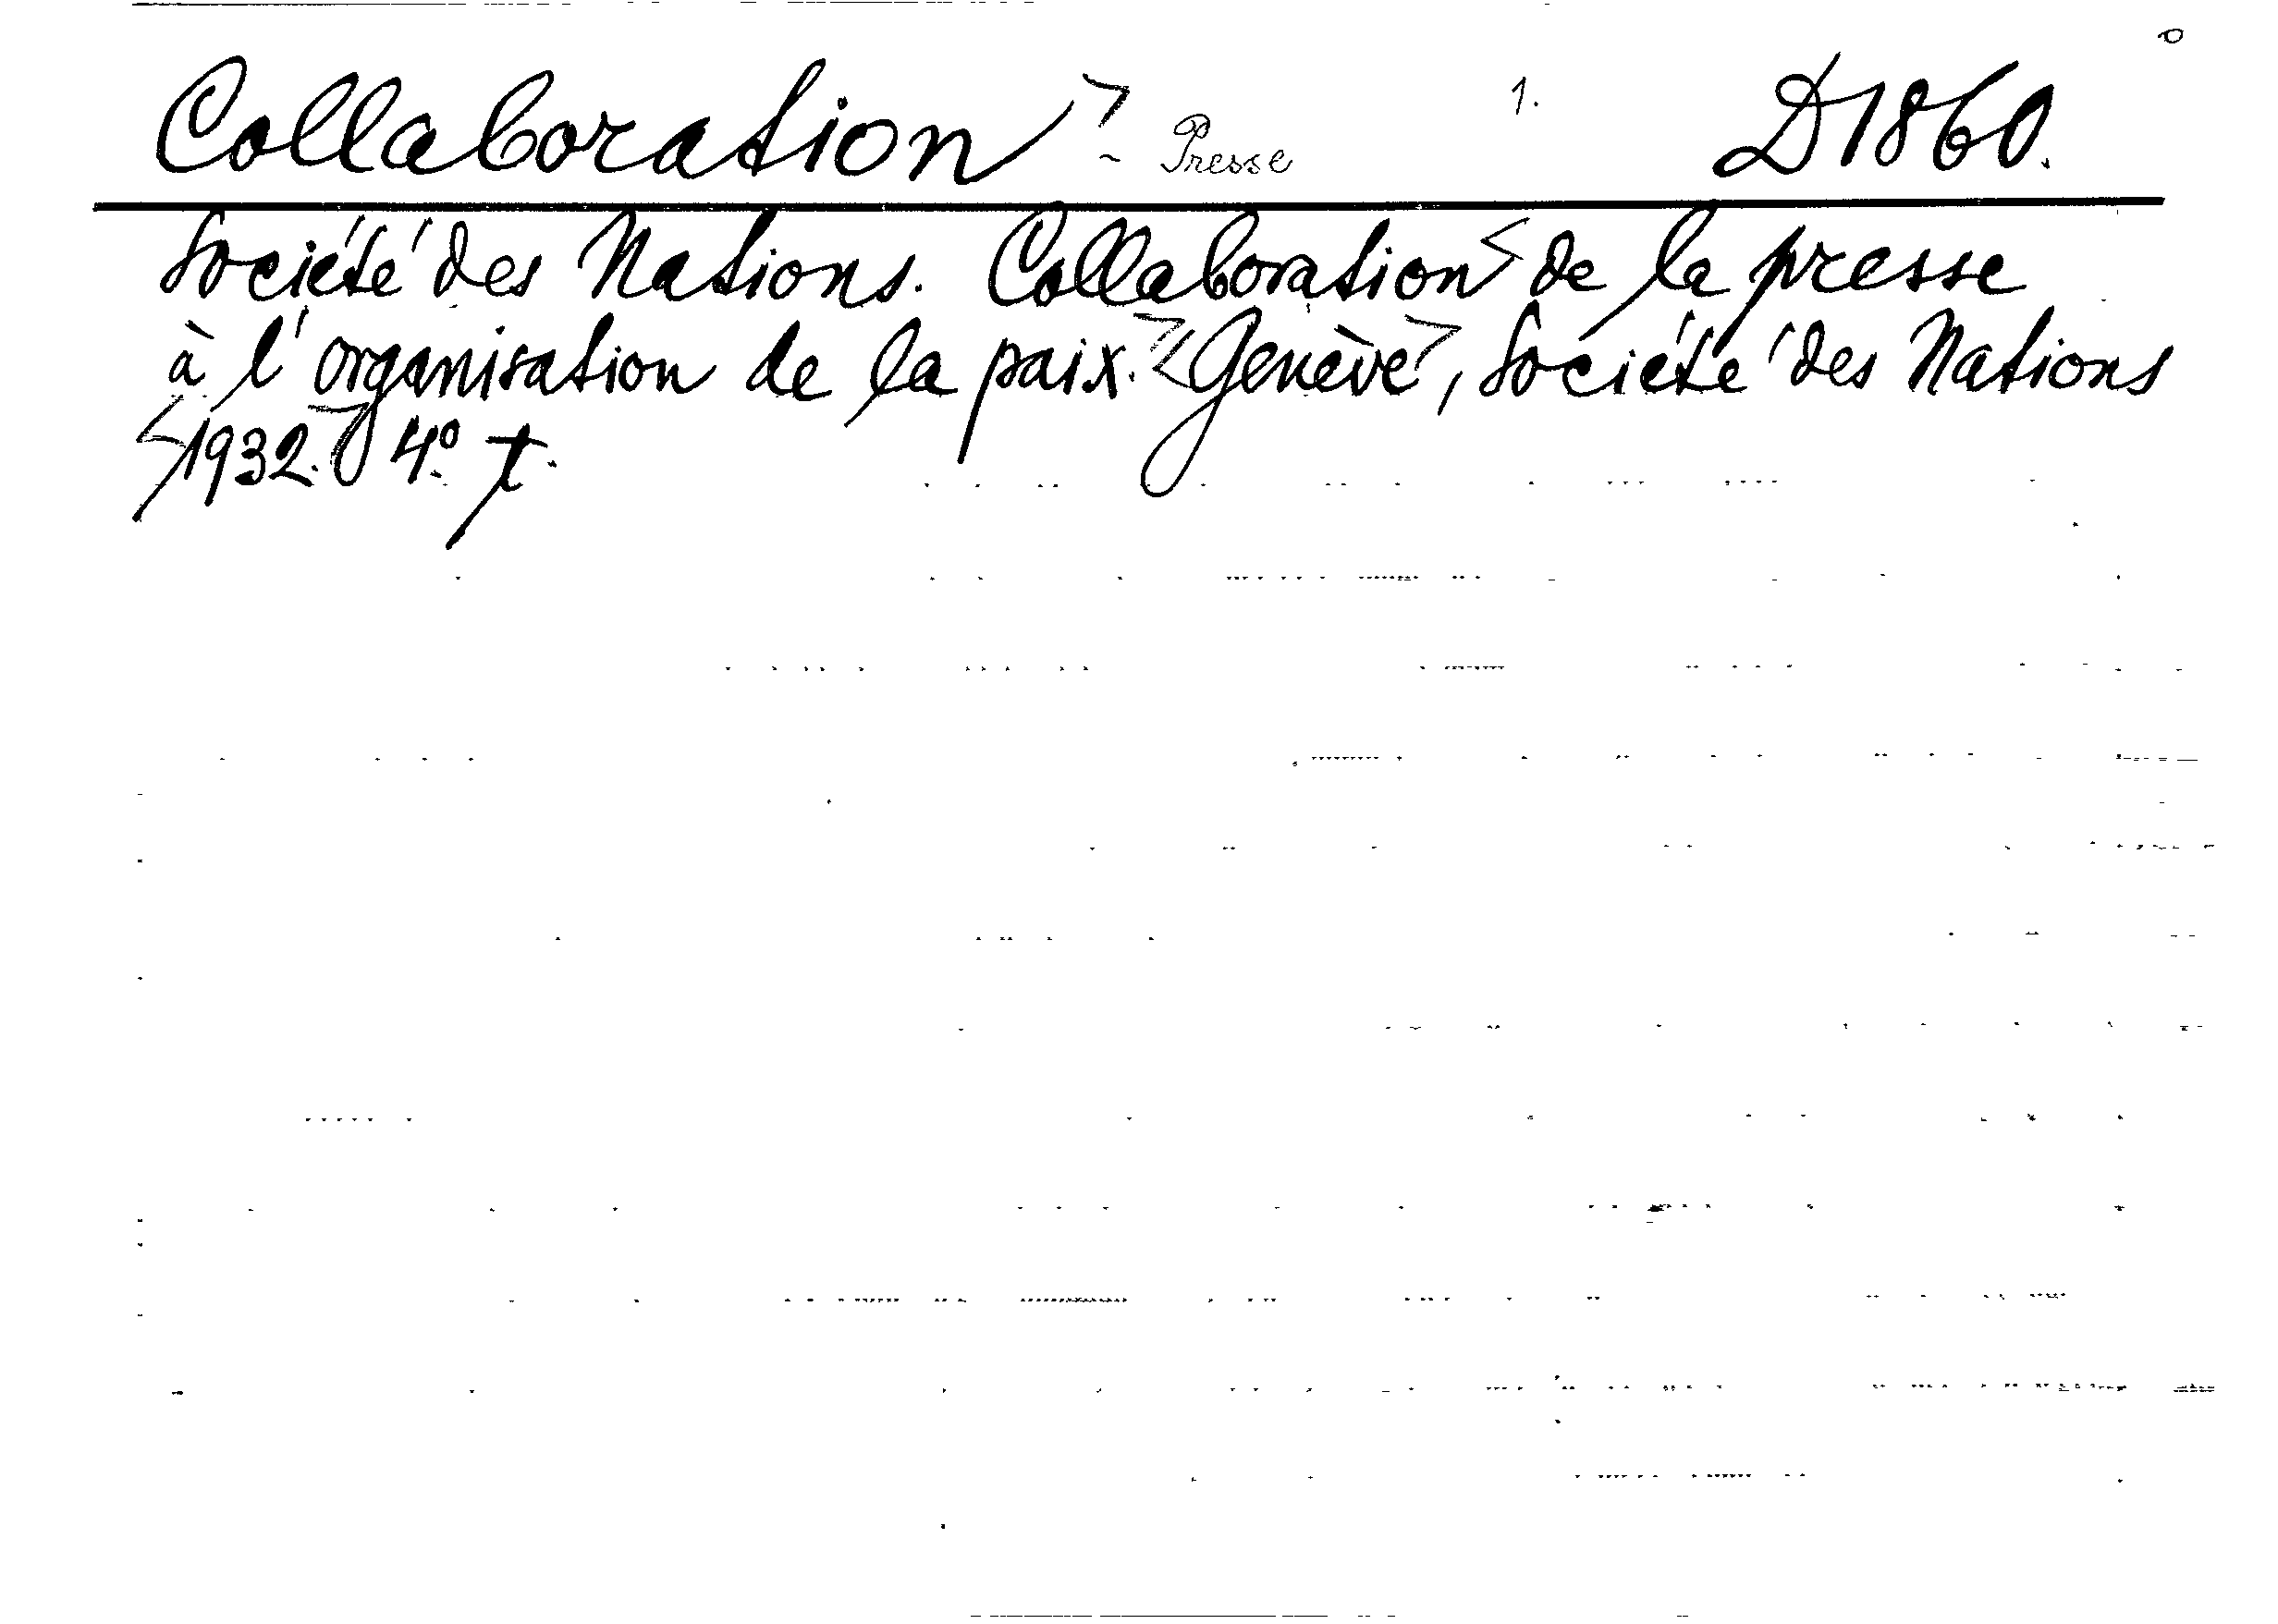 Collaboration - Presse 1. D1860.
Société des Nations. Collaboration de la presse
à l'organisation de la paix. Genève, Société des Nations
1932. 4° t.